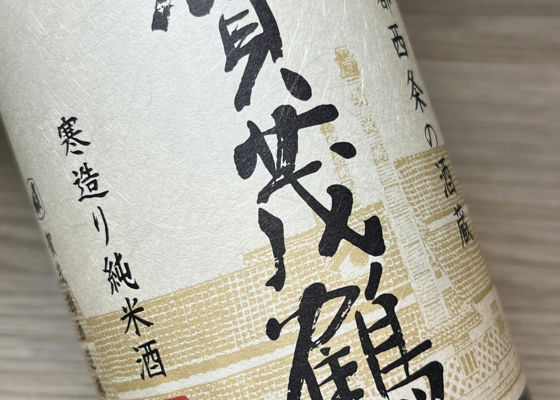 都西条の酒蔵
賀茂鶴
寒造り純米酒